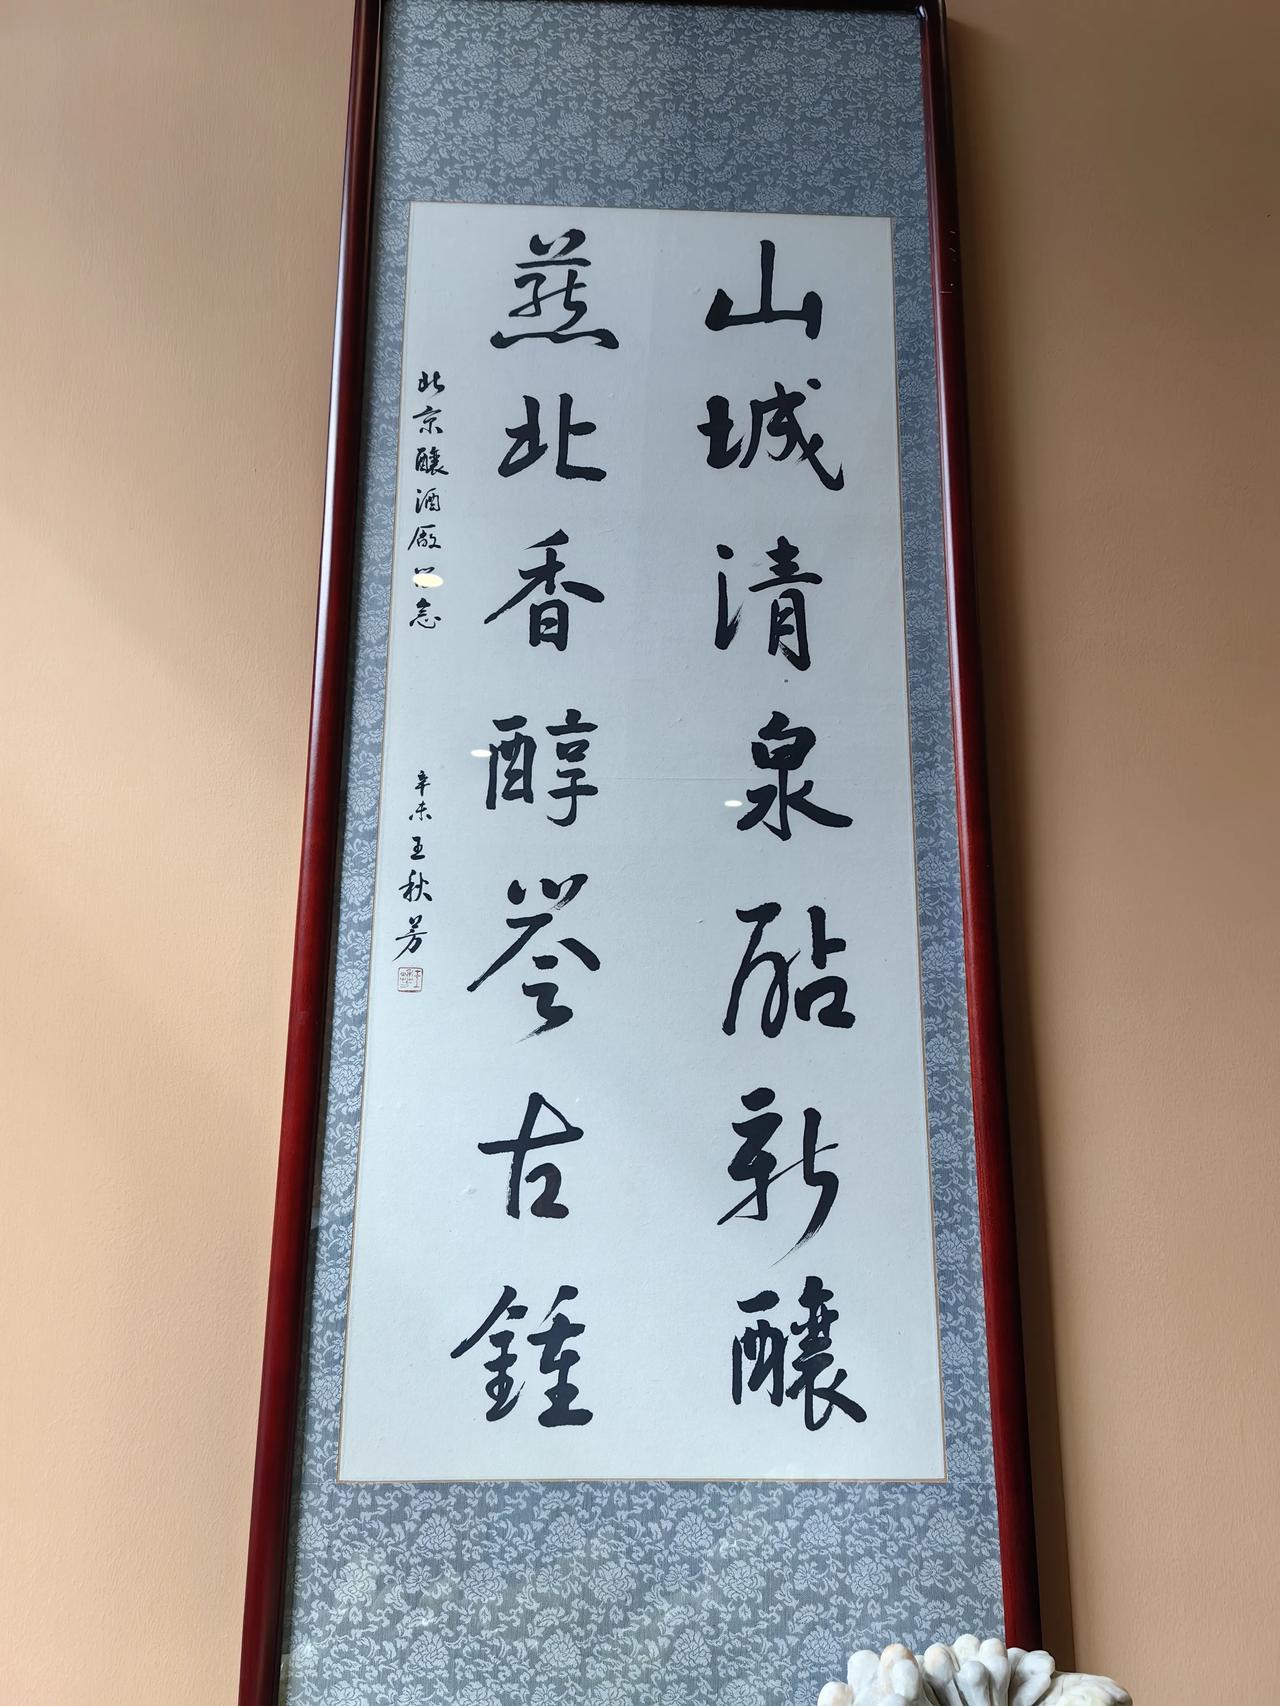 山城清泉新釀
燕北香醇誉古鍾
北京釀酒厰留念
辛未王秋芳